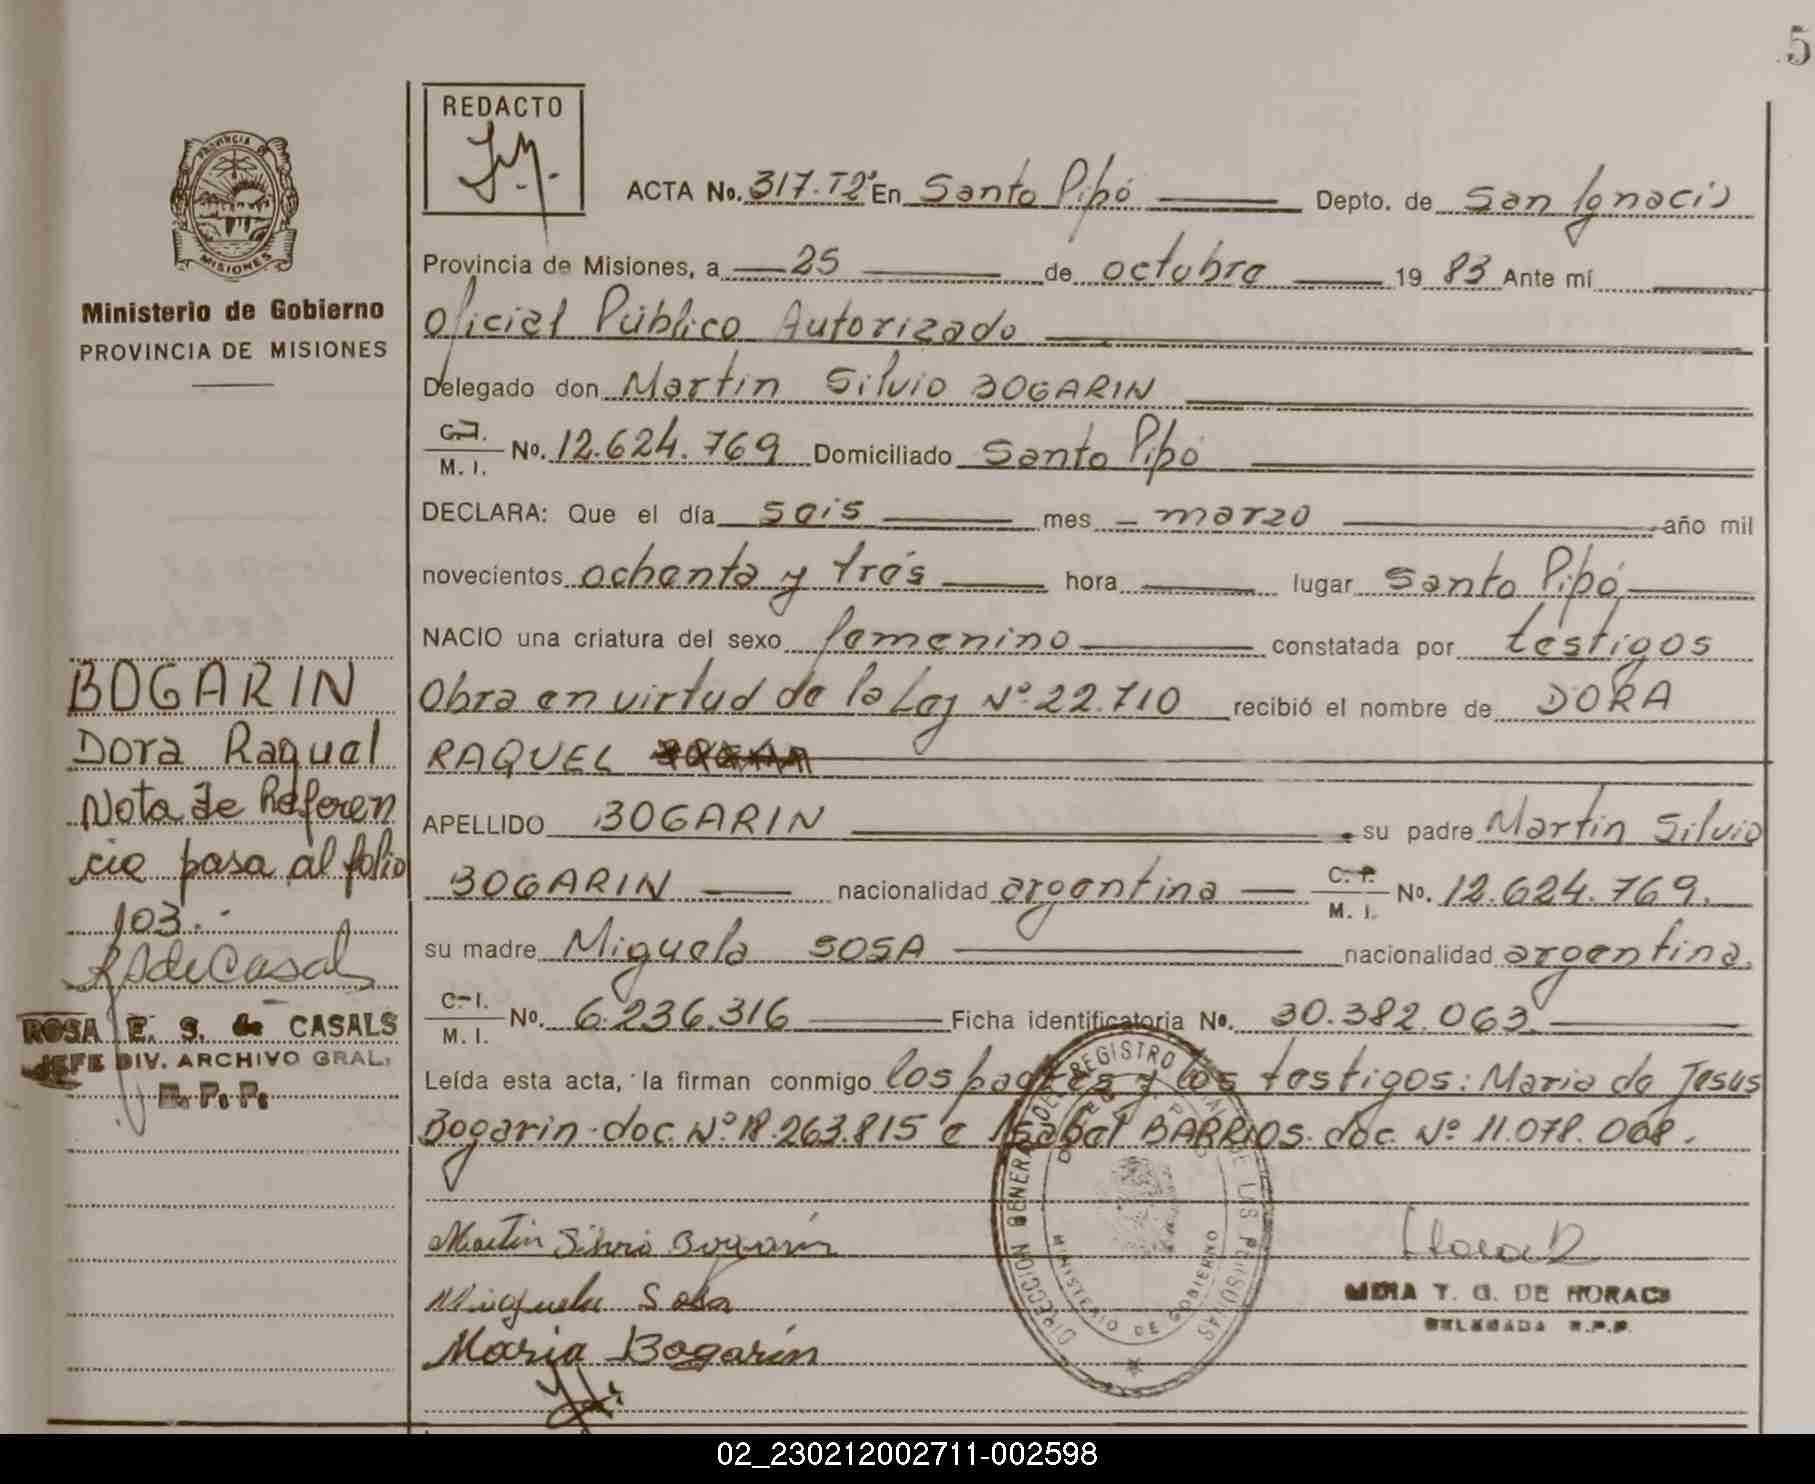 5
REDACTO
PROVINCIA DE
MISIONES
Ministerio de Gobierno
PROVINCIA DE MISIONES
ACTA No. 317.T2º En Santo Pipó Depto. de San Ignacio
Provincia de Misiones, a 25 de octubre 19 83 Ante mí
Oficial Público Autorizado
Delegado don Martin Silvio BOGARIN
C.I.
M. I. No. 12.624.769 Domiciliado Santo Pipó
DECLARA: Que el día seis mes marzo año mil
novecientos ochenta y trés hora lugar Santo Pipó
NACIO una criatura del sexo femenino constatada por testigos
Obra en virtud de la Ley Nº 22.710 recibió el nombre de DORA
RAQUEL
APELLIDO BOGARIN su padre Martin Silvio
BOGARIN nacionalidad argentina C. I.
M. I. No. 12.624.769.
su madre Miguela SOSA nacionalidad argentina.
C. I.
M. I. No. 6.236.316 Ficha identificatoria No. 30.382.063
Leída esta acta, la firman conmigo los padres y los testigos: Maria de Jesus
Bogarin doc. Nº 18.263.815 e Isabel BARRIOS. doc. Nº 11.078.008.
BOGARIN
Dora Raquel
Nota de Referen
cia pasa al folio
103.-
RSdeCasals
ROSA E. S. de CASALS
JEFE DIV. ARCHIVO GRAL.
R. P. P.
Martin Silvio Bogarin
Miguela Sosa
Maria Bogarin
DIRECCION GENERAL DEL REGISTRO PROVINCIAL DE LAS PERSONAS
MINISTERIO DE GOBIERNO
T. G. DE HORACI
DELEGADA R.P.P.
02_230212002711-002598